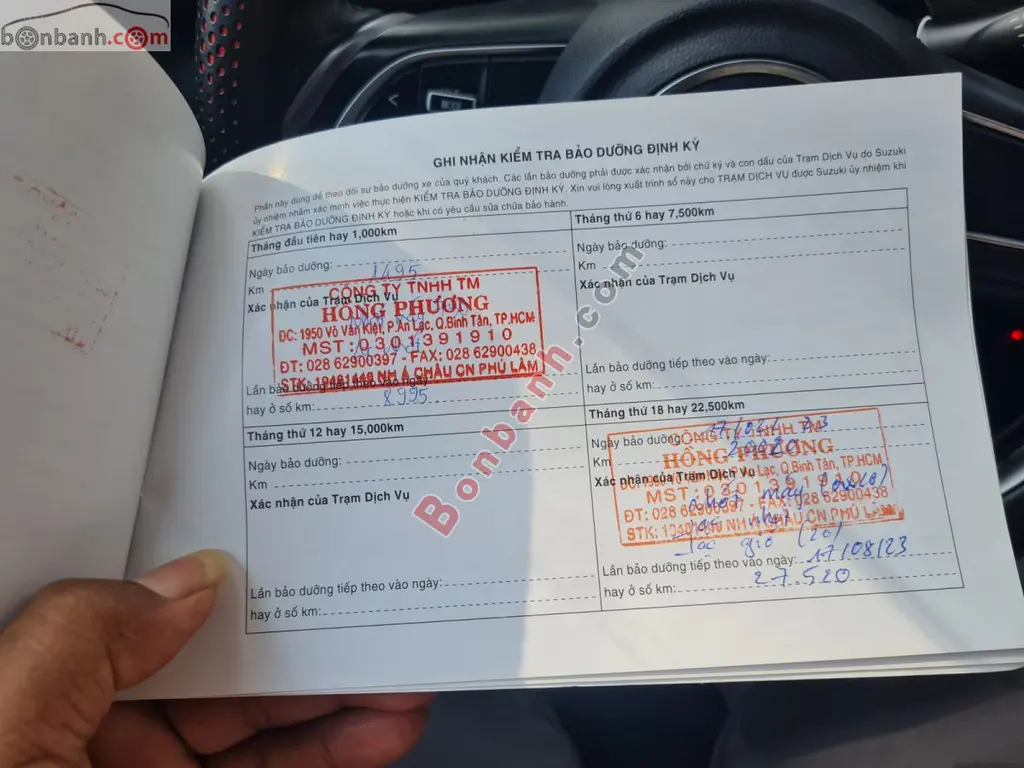 bonbanh.com
MODE
GHI NHẬN KIỂM TRA BẢO DƯỠNG ĐỊNH KỲ
Phần này dùng để theo dõi sự bảo dưỡng xe của quý khách. Các lần bảo dưỡng phải được xác nhận bởi chữ ký và con dấu của Trạm Dịch Vụ do Suzuki
ủy nhiệm nhằm xác minh việc thực hiện KIỂM TRA BẢO DƯỠNG ĐỊNH KỲ. Xin vui lòng xuất trình sổ này cho TRẠM DỊCH VỤ được Suzuki ủy nhiệm khi
KIỂM TRA BẢO DƯỠNG ĐỊNH KỲ hoặc khi có yêu cầu sửa chữa bảo hành.
Tháng đầu tiên hay 1,000km
Ngày bảo dưỡng:
Km 1495
Xác nhận của Trạm Dịch Vụ
CÔNG TY TNHH TM
HỒNG PHƯƠNG
ĐC: 1950 Võ Văn Kiệt, P.An Lạc, Q.Bình Tân, TP.HCM
MST: 0301391910
ĐT: 028 62900397 - FAX: 028 62900438
NH Á CHÂU CN PHÚ LÂM
Lần bảo dưỡng tiếp theo vào ngày:
hay ở số km: 8995
Tháng thứ 6 hay 7,500km
Ngày bảo dưỡng:
Km
Xác nhận của Trạm Dịch Vụ
Lần bảo dưỡng tiếp theo vào ngày:
hay ở số km:
Tháng thứ 12 hay 15,000km
Ngày bảo dưỡng:
Km
Xác nhận của Trạm Dịch Vụ
Lần bảo dưỡng tiếp theo vào ngày:
hay ở số km:
Tháng thứ 18 hay 22,500km
Ngày bảo dưỡng:
Km
Xác nhận của Trạm Dịch Vụ
CÔNG TY TNHH TM
HỒNG PHƯƠNG
Lạc, Q.Bình Tân, TP.HCM
MST: 0301391910
ĐT: 028 62900397 - FAX: 028 62900438
NH Á CHÂU CN PHÚ LÂM
lọc gió
Lần bảo dưỡng tiếp theo vào ngày: 17/08/23
hay ở số km: 27.520
Bonbanh.com